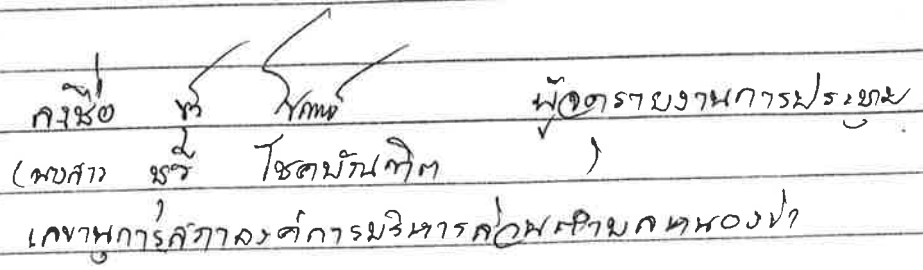 ลงชื่อ ผู้จดรายงานการประชุม
(นางสาว ชุรี โชคบัณฑิต )
เลขานุการสภาองค์การบริหารส่วนตำบลหนองขำ